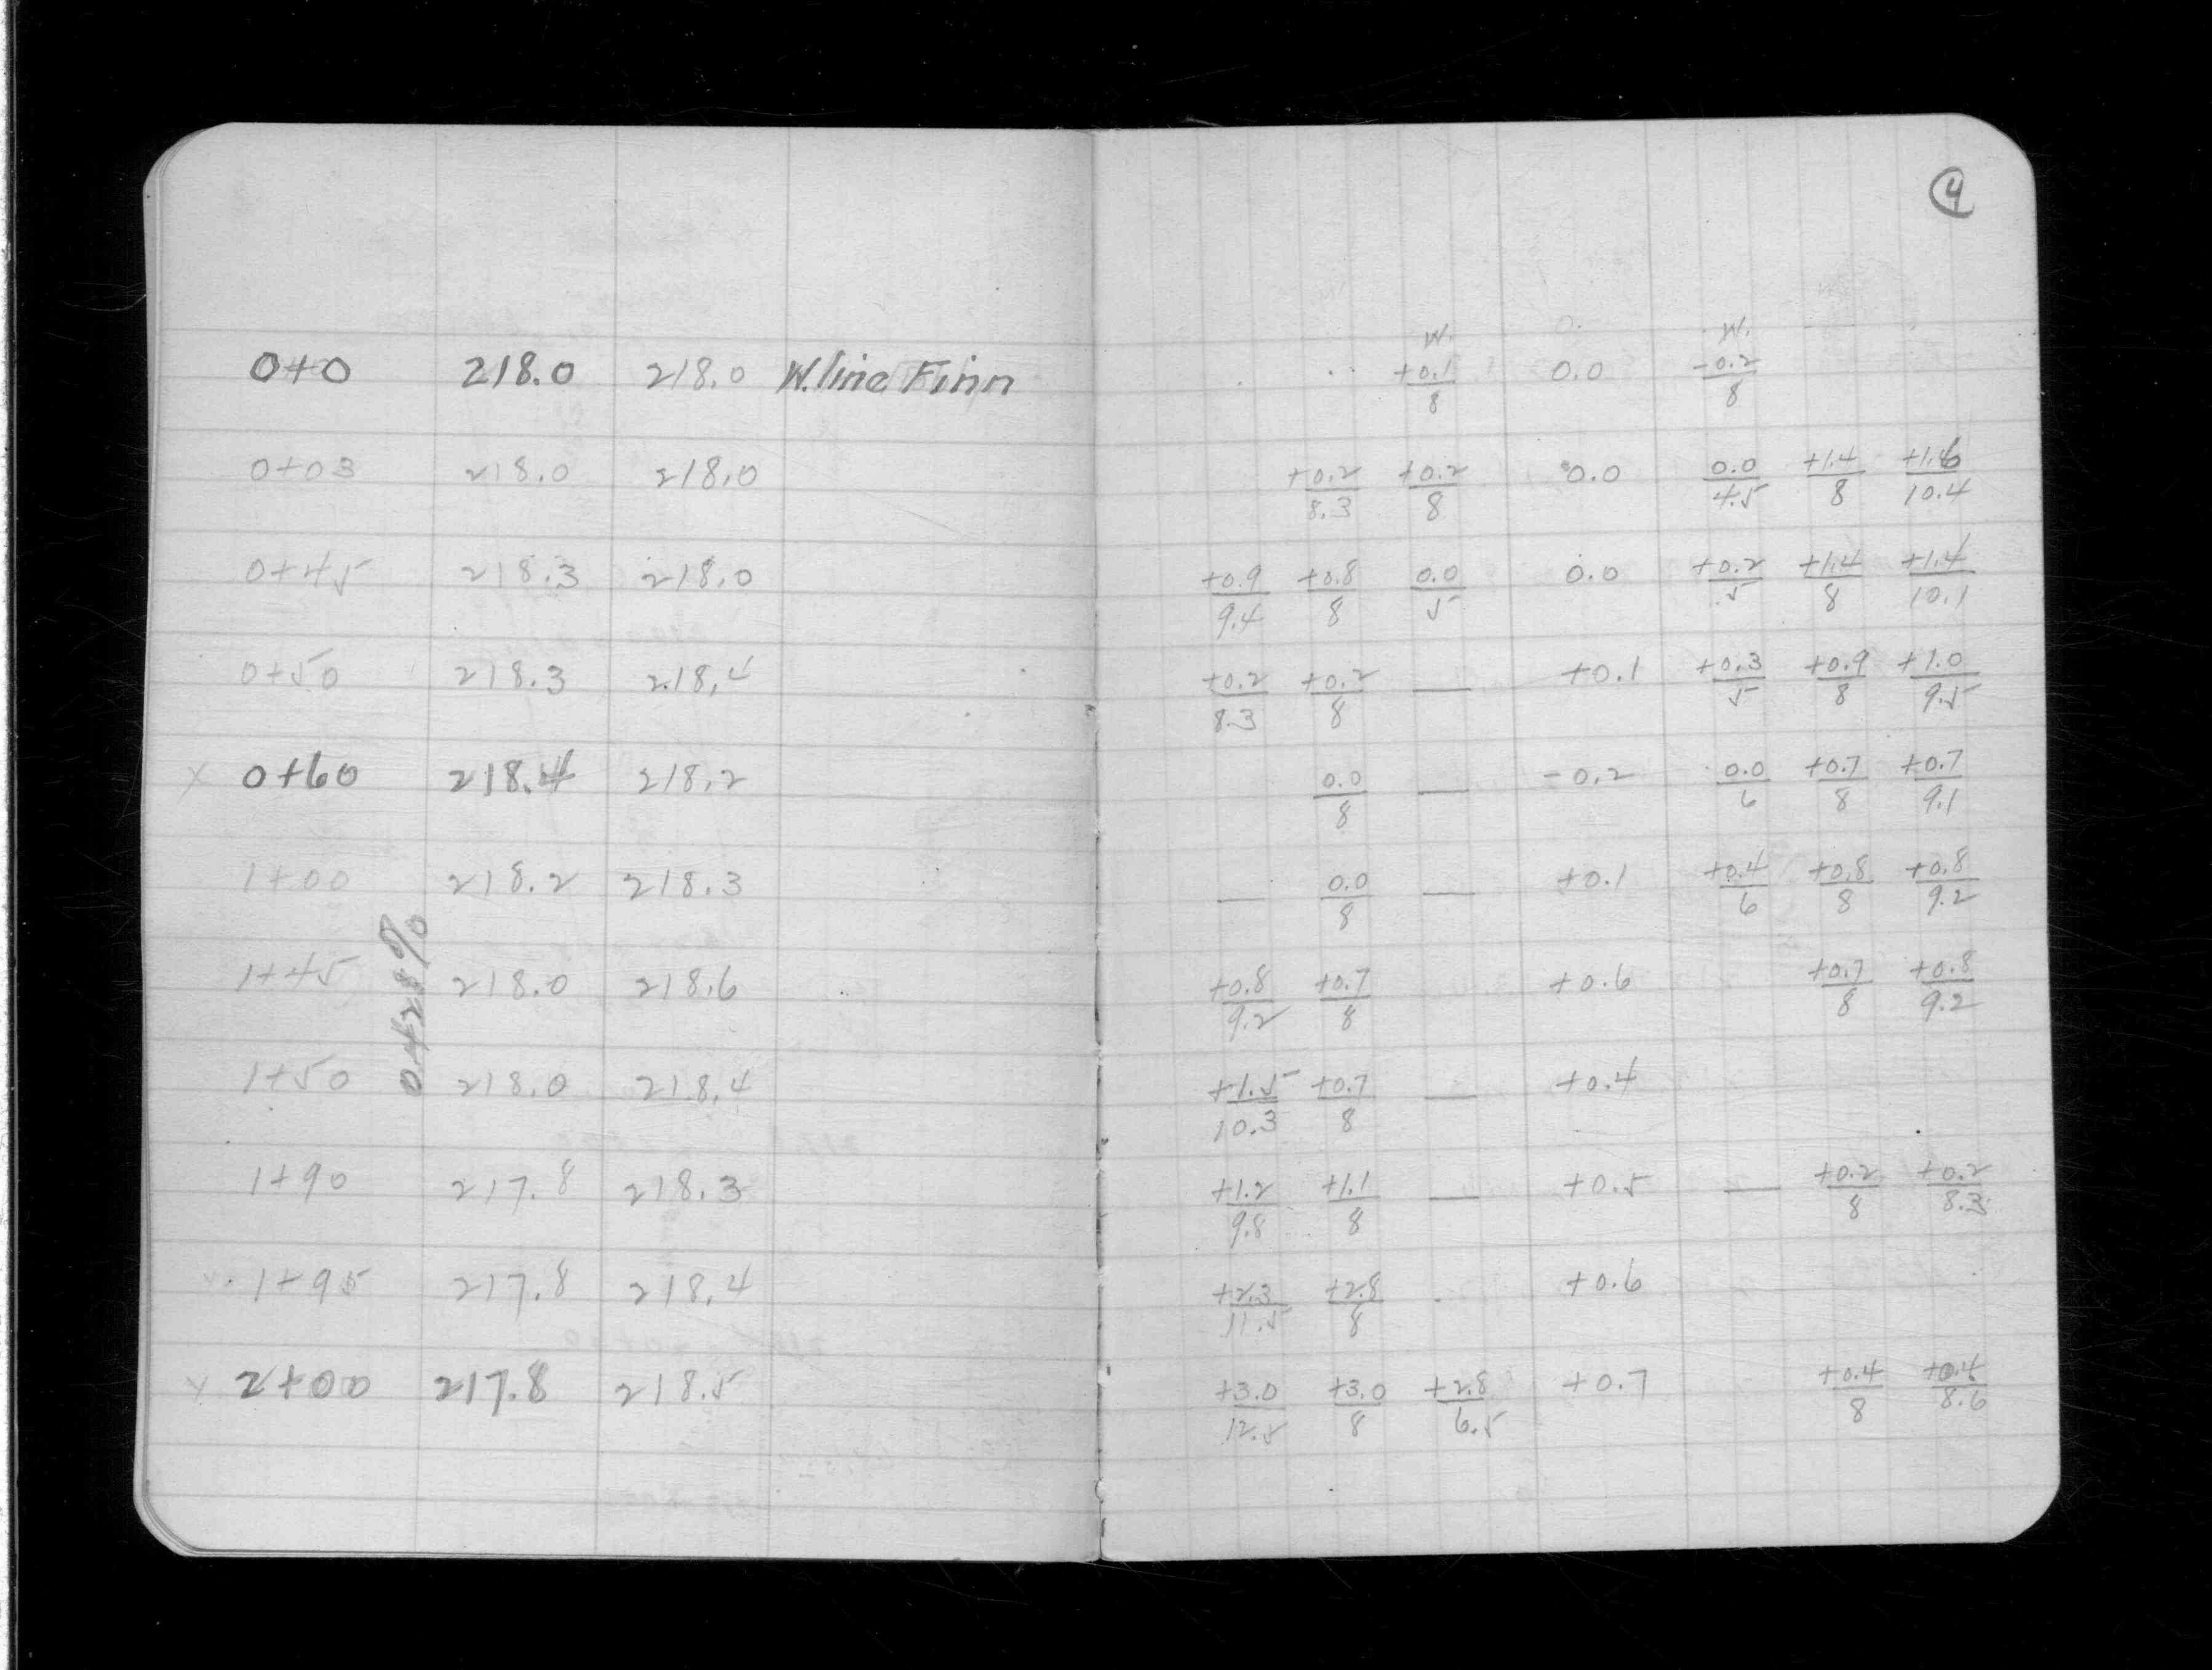 4
W. 0. W.
0+0 218.0 218.0 W. line Finn +0.1/8 0.0 -0.2/8
0+03 218.0 218.0 +0.2/8.3 +0.2/8 0.0 0.0/4.5 +1.4/8 +1.6/10.4
0+45 218.3 218.0 +0.9/9.4 +0.8/8 0.0/5 0.0 +0.2/5 +1.4/8 +1.4/10.1
0+50 218.3 218.4 +0.2/8.3 +0.2/8 — +0.1 +0.3/5 +0.9/8 +1.0/9.5
x 0+60 218.4 218.2 0.0/8 — -0.2 0.0/6 +0.7/8 +0.7/9.1
1+00 218.2 218.3 — 0.0/8 — +0.1 +0.4/6 +0.8/8 +0.8/9.2
0.428%
1+45 218.0 218.6 +0.8/9.2 +0.7/8 +0.6 +0.7/8 +0.8/9.2
1+50 218.0 218.4 +1.5/10.3 +0.7/8 — +0.4
1+90 217.8 218.3 +1.2/9.8 +1.1/8 — +0.5 — +0.2/8 +0.2/8.3
x 1+95 217.8 218.4 +2.3/11.5 +2.8/8 +0.6
x 2+00 217.8 218.5 +3.0/12.5 +3.0/8 +2.8/6.5 +0.7 +0.4/8 +0.4/8.6